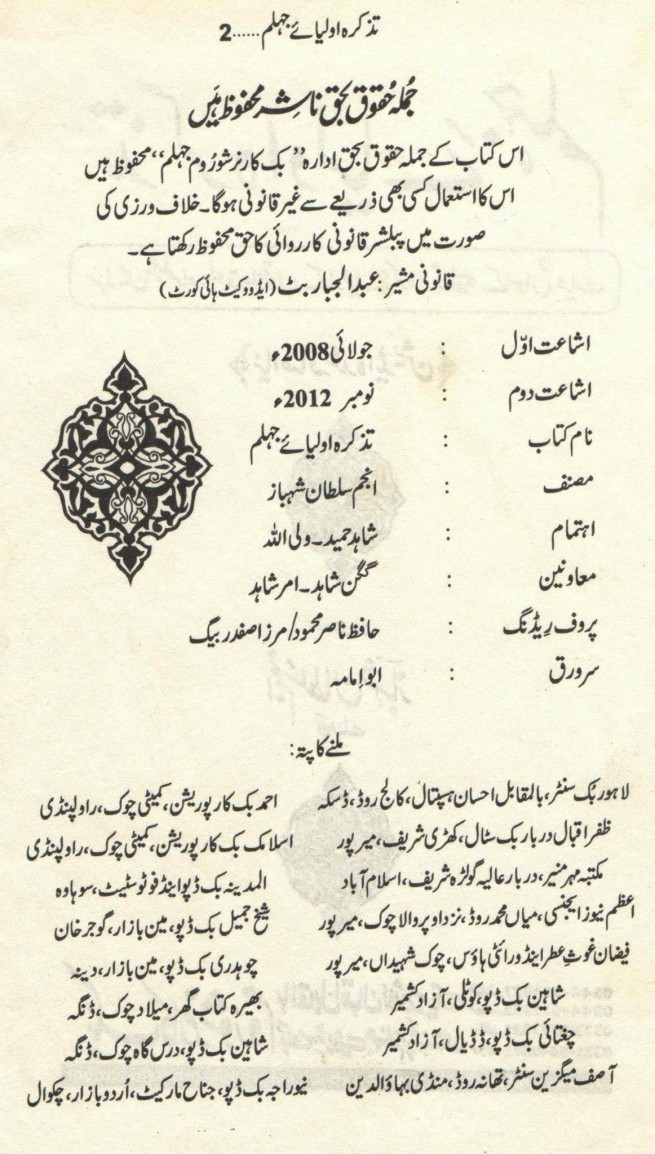 تذکرہ اولیائے جہلم......2
جُملہ حُقوق بحق ناشِر محفوظ ہَیں
اس کتاب کے جملہ حقوق بحق ادارہ "بک کارنر شو رُوم جہلم" محفوظ ہیں
اس کا استعمال کسی بھی ذریعے سے غیر قانونی ہوگا۔ خلاف ورزی کی
صورت میں پبلشر قانونی کارروائی کا حق محفوظ رکھتا ہے۔
قانونی مشیر: عبدالجبار بٹ (ایڈووکیٹ ہائی کورٹ)
اشاعت اوّل : جولائی 2008ء
اشاعت دوم : نومبر 2012ء
نام کتاب : تذکرہ اولیائے جہلم
مصنف : انجم سلطان شہباز
اہتمام : شاہد حمید۔ ولی اللہ
معاونین : گگن شاہد۔ امر شاہد
پروف ریڈنگ : حافظ ناصر محمود/مرزا صفدر بیگ
سرورق : ابو امامہ
ملنے کا پتہ:
لاہور بُک سنٹر، بالمقابل احسان ہسپتال، کالج روڈ، ڈسکہ احمد بک کارپوریشن، کمیٹی چوک، راولپنڈی
ظفر اقبال دربار بک سٹال، کھڑی شریف، میرپور اسلامک بک کارپوریشن، کمیٹی چوک، راولپنڈی
مکتبہ مہر منیر، دربار عالیہ گولڑہ شریف، اسلام آباد المدینہ بک ڈپو اینڈ فوٹو سٹیٹ، سوہاوہ
اعظم نیوز ایجنسی، میاں محمد روڈ، نزد اوپر والا چوک، میرپور شیخ جمیل بک ڈپو، مین بازار، گوجر خان
فیضان غوث عطر اینڈ ورائٹی ہاؤس، چوک شہیداں، میرپور چوہدری بک ڈپو، مین بازار، دینہ
شاہین بک ڈپو، کوٹلی، آزاد کشمیر بھیرہ کتاب گھر، میلاد چوک، ڈنگہ
چغتائی بک ڈپو، ڈڈیال، آزاد کشمیر شاہین بک ڈپو، درس گاہ چوک، ڈنگہ
آصف میگزین سنٹر، تھانہ روڈ، منڈی بہاؤالدین نیو راجہ بک ڈپو، جناح مارکیٹ، اُردو بازار، چکوال